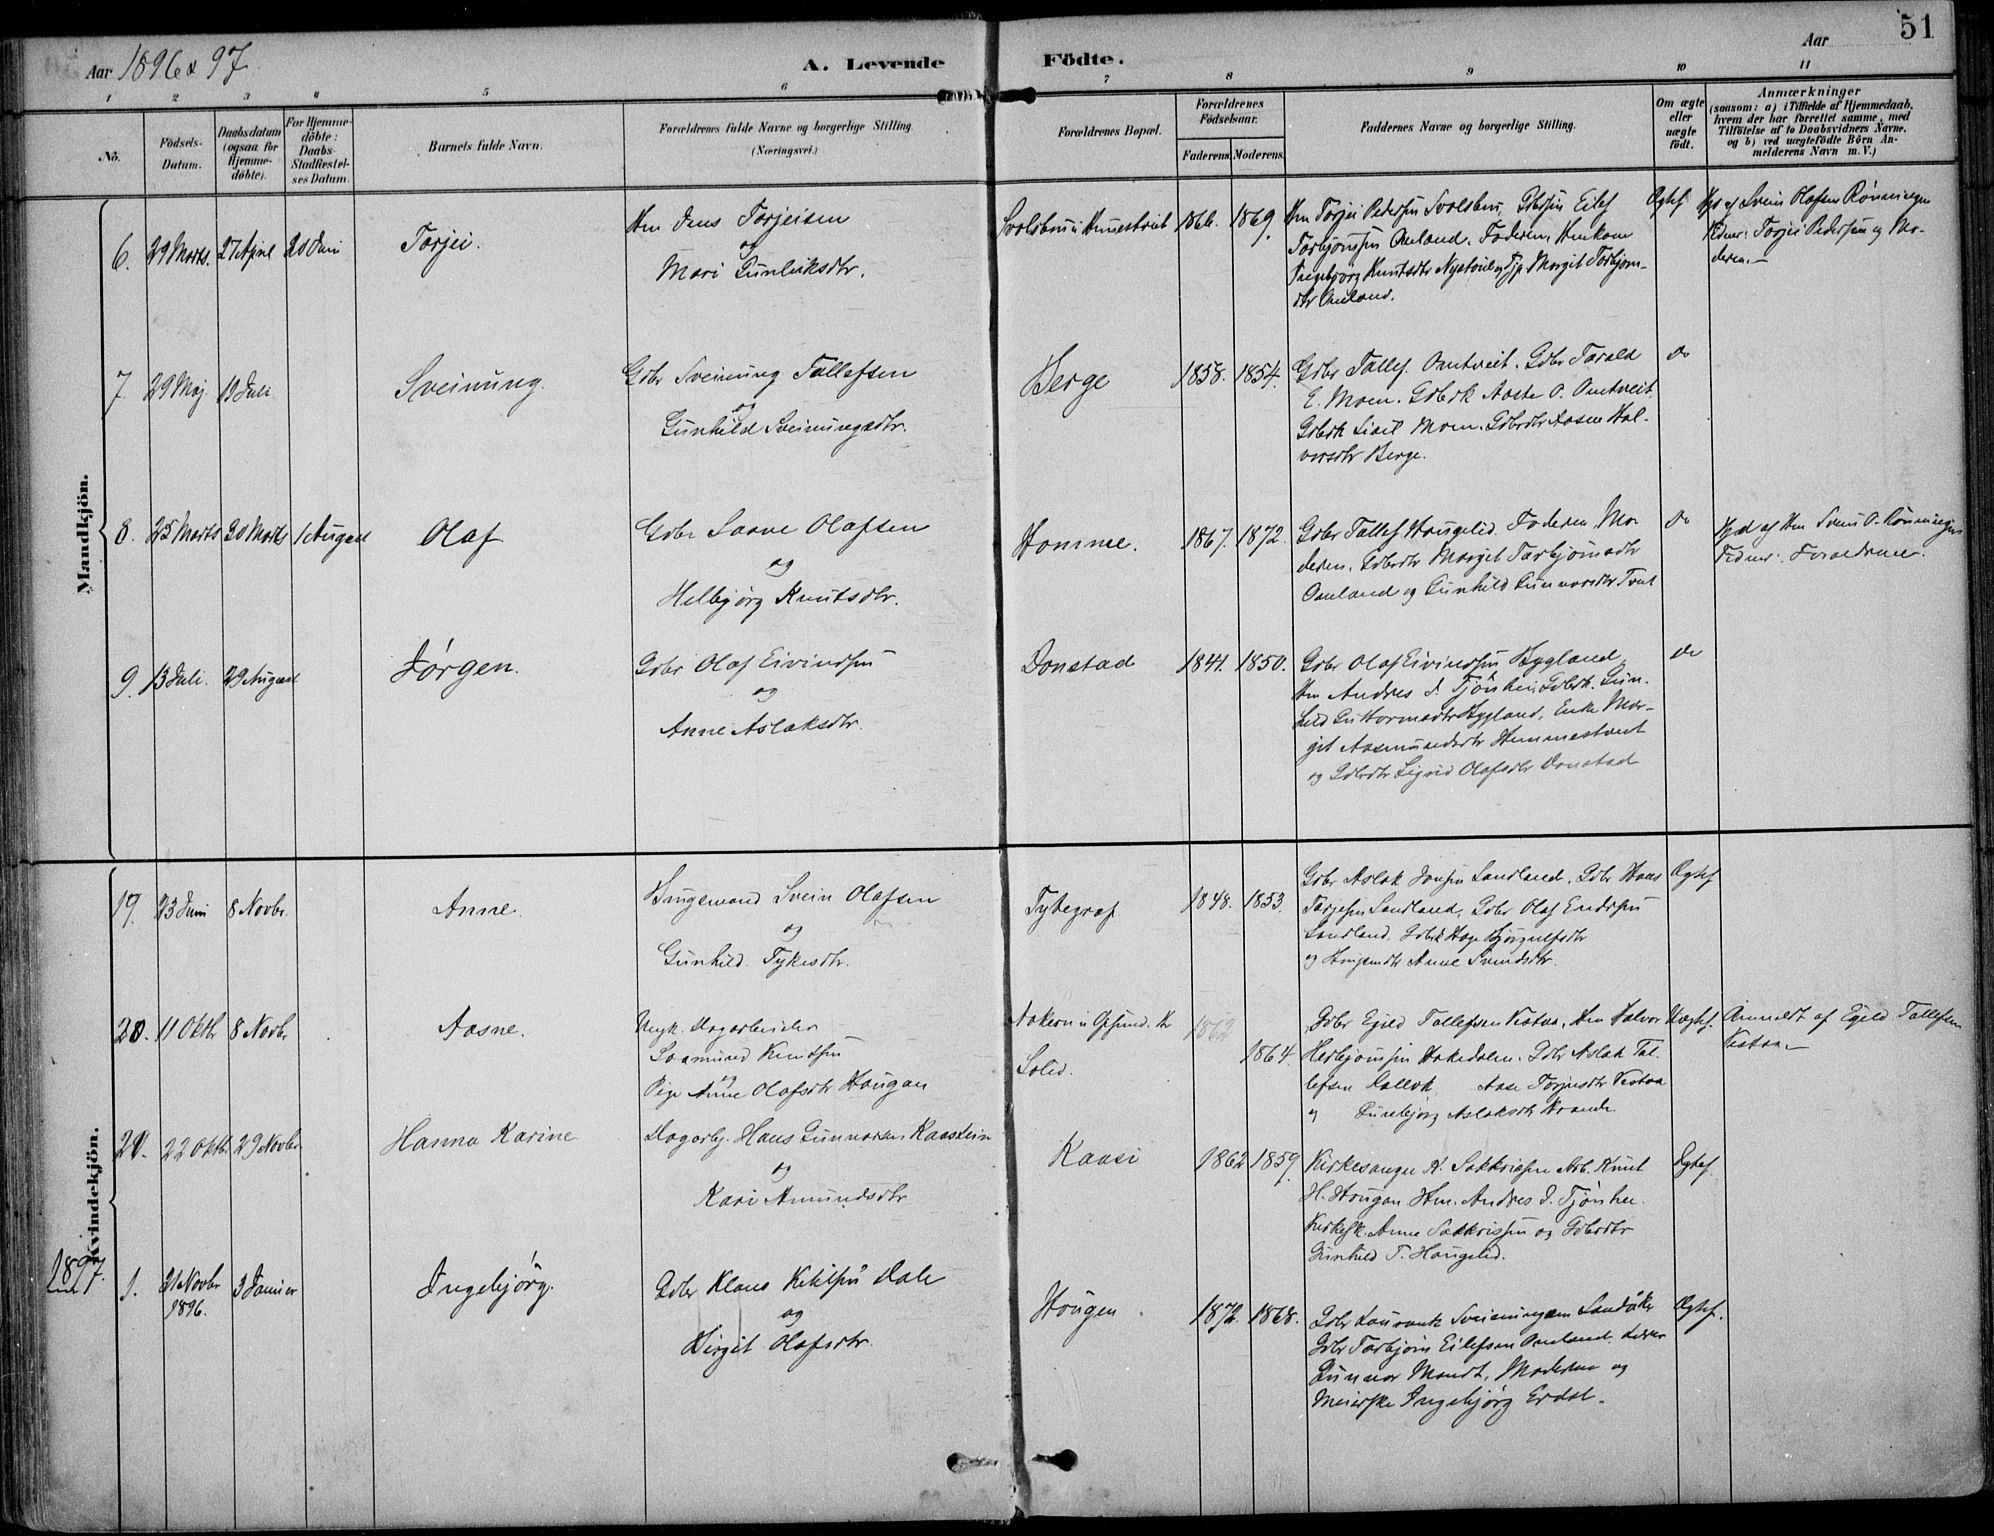 Aar 1896 & 97.
A. Levende Födte.
Aar 51
1 2 3 4 5 6 7 8 9 10 11
No.
Födsels-Datum.
Daabsdatum (ogsaa for Hjemme-döbte).
For Hjemme-döbte: Daabs-Stadfæstel-ses Datum.
Barnets fulde Navn.
Forældrenes fulde Navne og borgerlige Stilling (Næringsvei.)
Forældrenes Bopæl.
Forældrenes Födselsaar.
Faderens. Moderens.
Faddernes Navne og borgerlige Stilling.
Om ægte eller uægte födt.
Anmærkninger
(saasom: a) i Tilfælde af Hjemmedaab, hvem der har forrettet samme, med Tilföielse af to Daabsvidners Navne, og b) ved uægtefödte Börn An-melderens Navn m. V.)
Mandkjön.
6. 29 Marts. 27 April 20 Juni
Torjei.
Hm Jens Torjeisen
og
Mari Gunleiksdtr.
1866. 1869.
Hm Torjei Pedersen Svalsbru, Gbrsøn Eilef
Torbjønsen Omland. Faderen, Hmkone
Ingebjørg Knutsdtr og Margit Torbjøns-
dtr Omland.
Ægtef
Hjd af Svein Olafsen Rønningen
Vidner: Torjei Pedersen og Mo-
deren.
7. 29 Maj. 19 Juli
Sveinung.
Gdbr Sveinung Tallefsen
og
Gunhild Sveinungsdtr.
Berge
1858. 1854.
Gdbr Tallef Omtveit. Gdbr Tarald
E. Moen. Gdbrk Aaste O. Omtveit.
Gdbrk Moen. Gdbrdtr Aasne Hal-
vorsdtr Berge.
do
8. 25 Marts 30 Marts 1 August
Olaf
Gdbr Saave Olafsen
og
Helbjørg Knutsdtr.
Homme.
1867. 1872.
Gdbr Tallef Haugelid. Faderen, Mo-
deren. Gdbrdtr Margit Torbjørnsdtr
Omland og Gunhild Gunnarsdtr
do
Hjd af Hm Svein O. Rønningen
Vidner: Forældrene.
9. 13 Juli. 29 August
Jørgen.
Gdbr Olaf Eivindsen
og
Anne Aslaksdtr.
Donstad
1841. 1850.
Gdbr Olaf Eivindsen Hygland,
Hm Andres J. Tjønhei, Gdbrk. Gun-
hild Guttormsdtr Hygland, Enke Mar-
git Aasmundsdtr Hemmestveit
og Gdbrdtr Sigrid Olafsdtr Donstad
do
Kvindekjön.
19. 23 Juni 8 Novbr.
Anne.
Svein Olafsen
og
Gunhild Tykesdtr.
Tytegraf
1848. 1853.
Gdbr Aslak Jonsen Sandland, Gdbr Hans
Tarjesen Sandland, Gdbr Olaf Endresen
Sandland, Gdbrk Hæge Bjørgulfsdtr
og Anne Sveinsdtr.
Ægtef
20. 11 Oktbr 8 Novbr
Aasne.
Ungk. Dagarbeider
Aasmund Knutsen
og
Pige Anne Olafsdtr Haugan
1862
1864.
Gdbr Egild Tallefsen Vestaa, Hm Halvor
Herbjønsen Hakedalen. Gdbr Aslak Tal-
lefsen Aase Torjusdtr Vestaa
og Gunebjørg Aslaksdtr
Uægtef.
Anmeldt af Egild Tallefsen
Vestaa.
21. 22 Oktbr 29 Novbr.
Hanna Karine
Dagarb. Hans Gunnarsen Kaasi
og
Kari Amundsdtr
Kaasi
1862 1859.
Kirkesanger A. Sakkriasen Arb. Knut
H. Haugan Hm. Andres J. Tjønhei.
Anne Sakkrissen og Gdbrdtr
Gunhild T. Haugelid.
Ægtef.
1897.
1. 21 Novbr 1896. 3 Januar
Ingebjörg.
Gdbr Klaus Ketilsen Dale
og
Birgit Olafsdtr.
Haugen
1872. 1868.
Gdbr Laurants Sveinungsen Sandåker
Gdbr Torbjørn Eilefsen Omland. Lærer
Gunnar Mandt, Moderen og
Meierske Ingebjørg Erdal.
Ægtef.